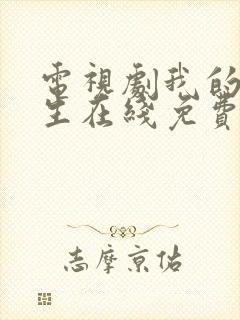 電視劇我的
生在綫免費
志摩京佑